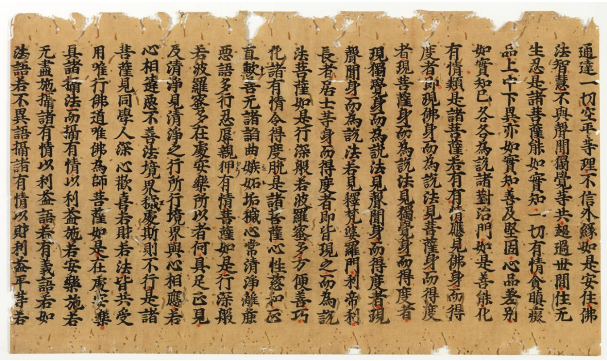 通達一切空平等理不信外緣如是安住佛
法智慧不與聲聞獨覺等共超過世間住无
生忍是諸菩薩能如實知一切有情貪瞋癡
品上中下異亦如實知善及堅固心品差別
如實知已各各為說諸對治門如是善能化
有情類是諸菩薩若有有情應見佛身而得
度者即現佛身而為說法見菩薩身而得度
者現菩薩身而為說法見獨覺身而得度者
現獨覺身而為說法見聲聞身而得度者現
聲聞身而為說法若見釋梵婆羅門刹帝利
長者居士等身而得度者即皆現之而為說
法菩薩如是行深般若波羅蜜多方便善巧
化諸有情令得度脫是諸菩薩心性慈和正
直歡喜无諸諂曲嫉妬垢穢心常清淨離麁
惡語多行忍辱親狎有情菩薩如是行深般
若波羅蜜多在處安樂所以者何具足正見
及清淨見清淨之行所行境界與心相應若
心相違處不善法境界穢處斯則不行是諸
菩薩見同學人深心歡喜若財若法皆共受
用唯行佛道唯佛為師菩薩如是在處安樂
具諸攝法而攝有情以利益施若安樂施若
无盡施攝諸有情以利益語若有義語若如
法語若不異語攝諸有情以財利益平等若